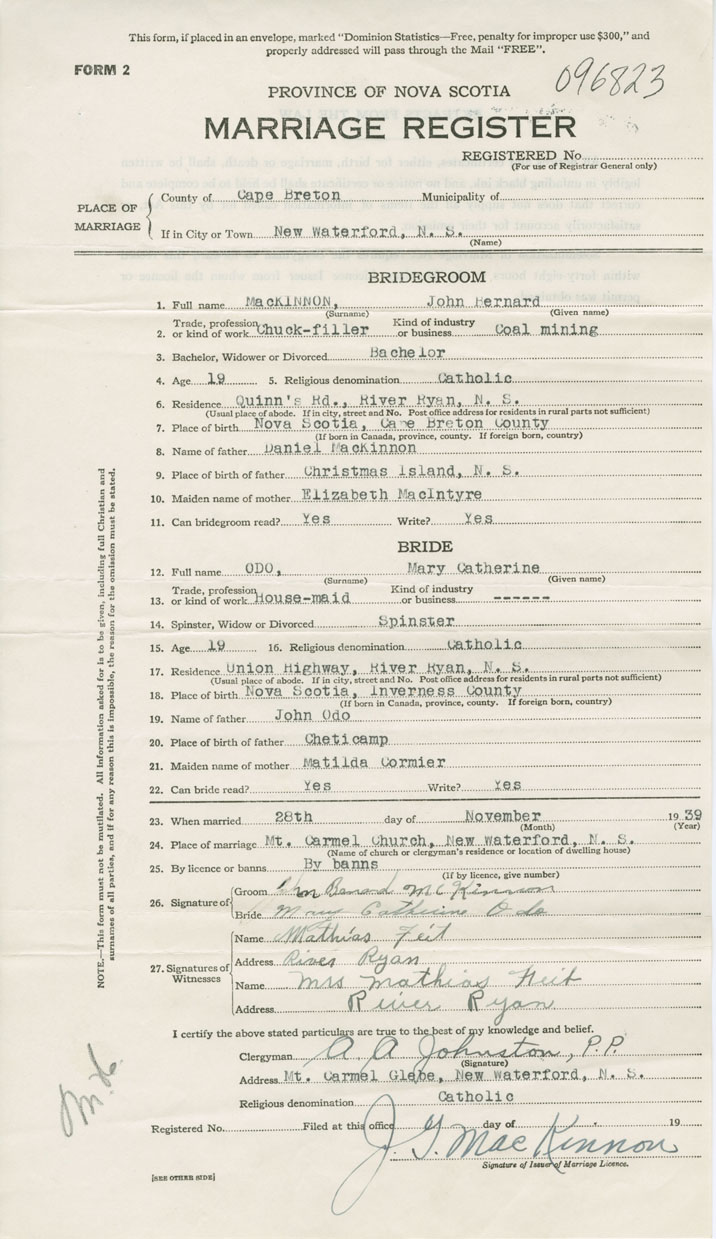 This form, if placed in an envelope, marked "Dominion Statistics—Free, penalty for improper use $300," and
properly addressed will pass through the Mail "FREE".
FORM 2
096823
PROVINCE OF NOVA SCOTIA
MARRIAGE REGISTER
REGISTERED No.
(For use of Registrar General only)
PLACE OF MARRIAGE
County of Cape Breton Municipality of
If in City or Town New Waterford, N. S.
(Name)
BRIDEGROOM
1. Full name MacKINNON, John Bernard
(Surname) (Given name)
2. Trade, profession or kind of work Chuck-filler Kind of industry or business Coal mining
3. Bachelor, Widower or Divorced Bachelor
4. Age 19 5. Religious denomination Catholic
6. Residence Quinn's Rd., River Ryan, N. S.
(Usual place of abode. If in city, street and No. Post office address for residents in rural parts not sufficient)
7. Place of birth Nova Scotia, Cape Breton County
(If born in Canada, province, county. If foreign born, country)
8. Name of father Daniel MacKinnon
9. Place of birth of father Christmas Island, N. S.
10. Maiden name of mother Elizabeth MacIntyre
11. Can bridegroom read? Yes Write? Yes
BRIDE
12. Full name ODO, Mary Catherine
(Surname) (Given name)
13. Trade, profession or kind of work House-maid Kind of industry or business ------
14. Spinster, Widow or Divorced Spinster
15. Age 19 16. Religious denomination Catholic
17. Residence Union Highway, River Ryan, N. S.
(Usual place of abode. If in city, street and No. Post office address for residents in rural parts not sufficient)
18. Place of birth Nova Scotia, Inverness County
(If born in Canada, province, county. If foreign born, country)
19. Name of father John Odo
20. Place of birth of father Cheticamp
21. Maiden name of mother Matilda Cormier
22. Can bride read? Yes Write? Yes
23. When married 28th day of November 1939
(Month) (Year)
24. Place of marriage Mt. Carmel Church, New Waterford, N. S.
(Name of church or clergyman's residence or location of dwelling house)
25. By licence or banns By banns
(If by licence, give number)
26. Signature of
Groom Bernard McKinnon
Bride Mary Catherine Odo
27. Signatures of Witnesses
Name Mathias Feit
Address River Ryan
Name Mrs Mathias Feit
Address River Ryan
I certify the above stated particulars are true to the best of my knowledge and belief.
Clergyman A. A. Johnston, P.P.
(Signature)
Address Mt. Carmel Glebe, New Waterford, N. S.
Religious denomination Catholic
Registered No. Filed at this office day of 19
J. G. MacKinnon
Signature of Issuer of Marriage Licence.
[SEE OTHER SIDE]
NOTE.—This form must not be mutilated. All information asked for is to be given, including full Christian and
surnames of all parties, and if for any reason this is impossible, the reason for the omission must be stated.